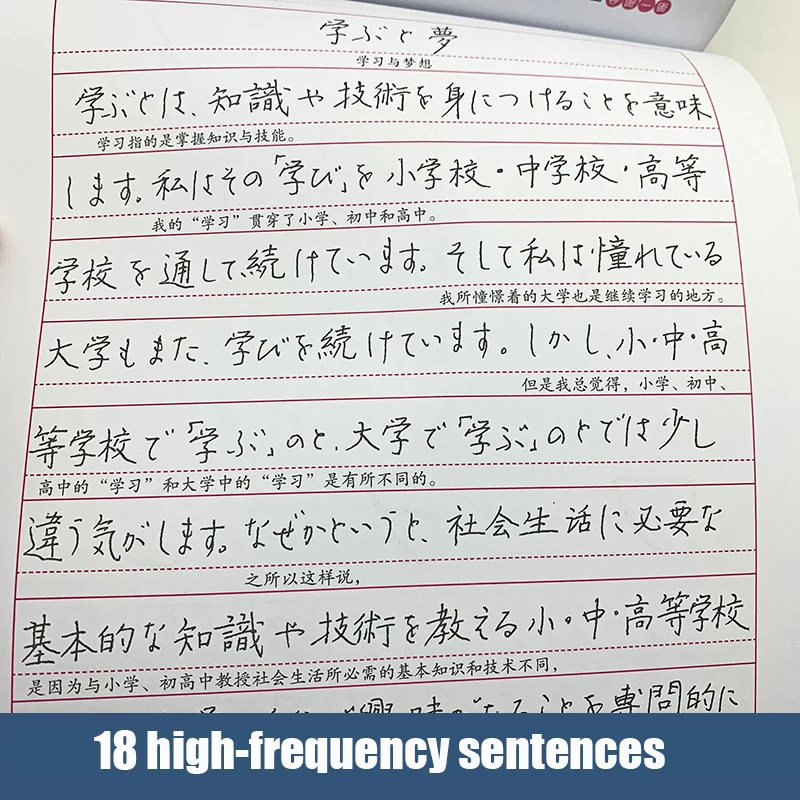 学ぶと夢
学习与梦想
学ぶとは、知識や技術を身につけることを意味
学习指的是掌握知识与技能。
します。私はその「学び」を小学校・中学校・高等
我的“学习”贯穿了小学、初中和高中。
学校を通して、続けています。そして私は憧れている
我所憧憬着的大学也是继续学习的地方。
大学もまた、学びを続けています。しかし、小・中・高
但是我总觉得，小学、初中、
等学校で「学ぶ」のと、大学で「学ぶ」のとでは少し
高中的“学习”和大学中的“学习”是有所不同的。
違う気がします。なぜかというと、社会生活に必要な
之所以这样说，
基本的な知識や技術を教える小・中・高等学校
是因为与小学、初高中教授社会生活所必需的基本知识和技术不同，
興味があることを専門的に
18 high-frequency sentences